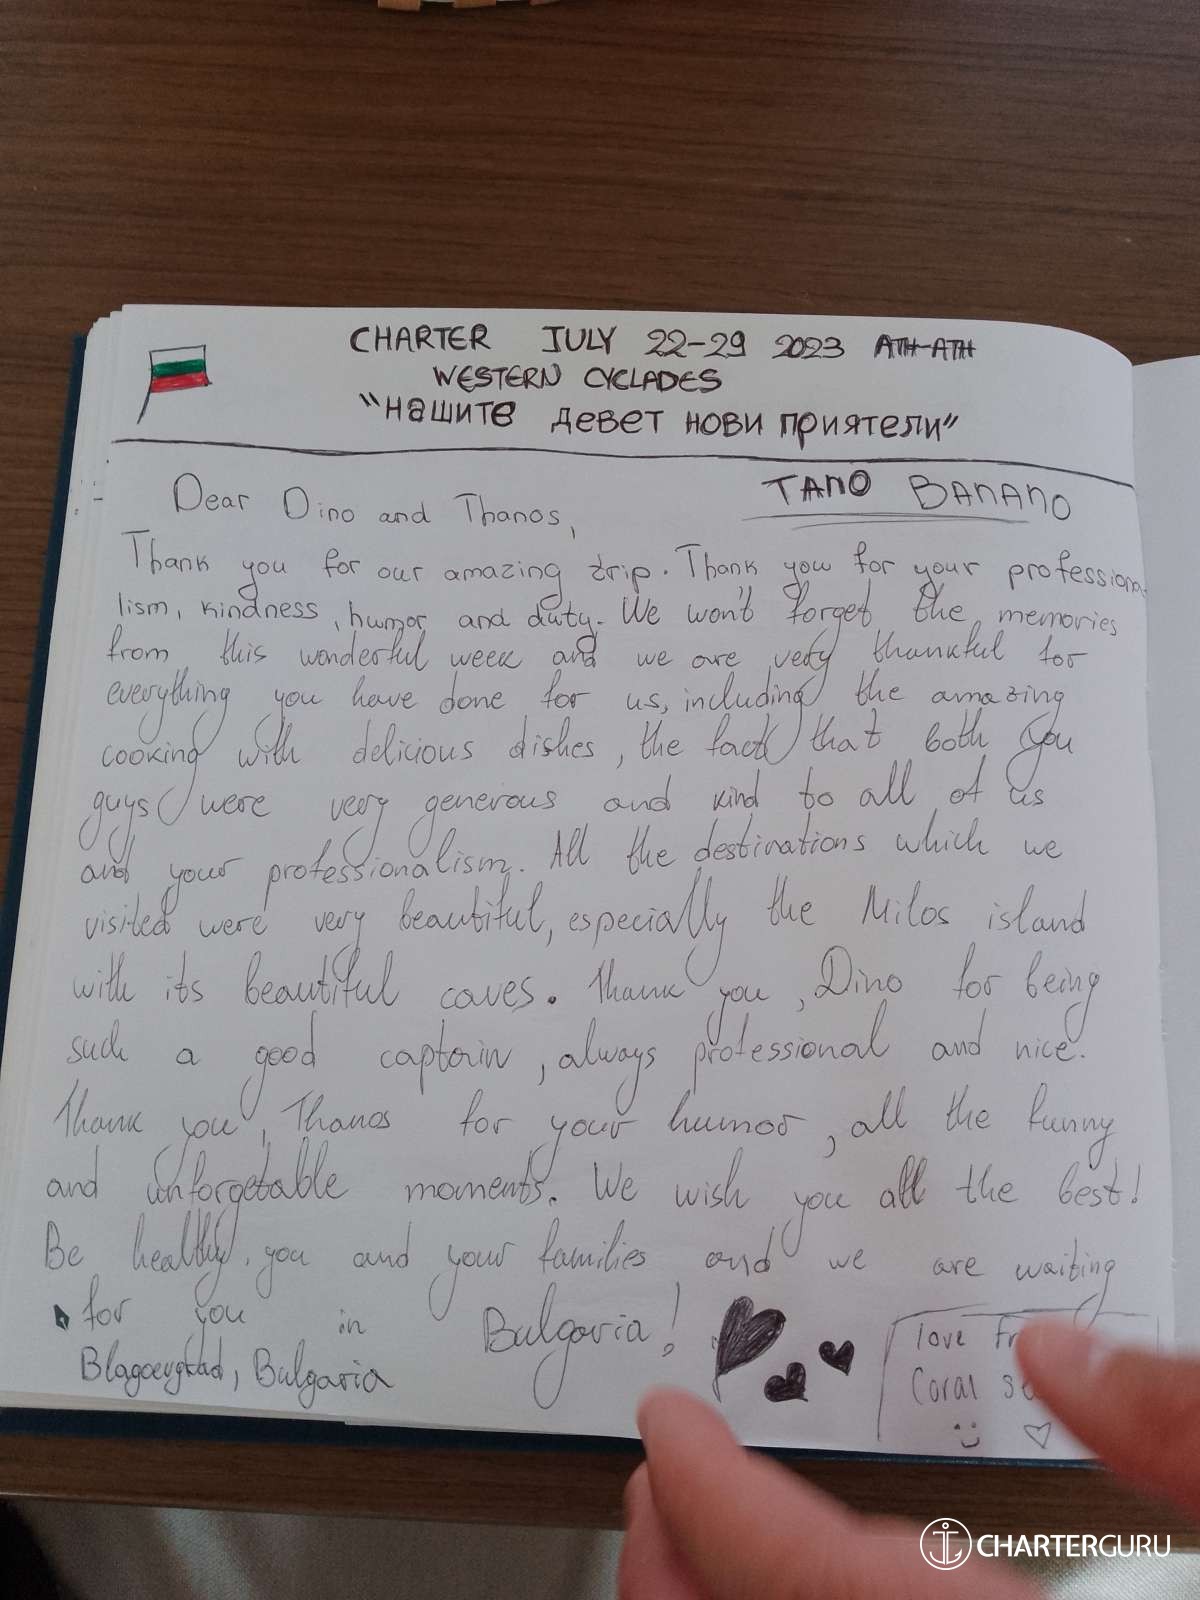 CHARTER JULY 22-29 2023 ATH-ATH
WESTERN CYCLADES
"нашите девет нови приятели"
TANO BANANO
Dear Dino and Thanos,
Thank you for our amazing trip. Thank you for your professiona
lism, kindness, humor and duty. We won't forget the memories
from this wonderful week and we are very thankful for
everything you have done for us, including the amazing
cooking with delicious dishes, the fact that both you
guys were very generous and kind to all of us
and your professionalism. All the destinations which we
visited were very beautiful, especially the Milos island
with its beautiful caves. Thank you, Dino for being
such a good captain, always professional and nice.
Thank you, Thanos for your humor, all the funny
and unforgetable moments. We wish you all the best!
Be healthy, you and your families and we are waiting
for you in Bulgaria!
Blagoevgrad, Bulgaria
love
Coral
CHARTERGURU